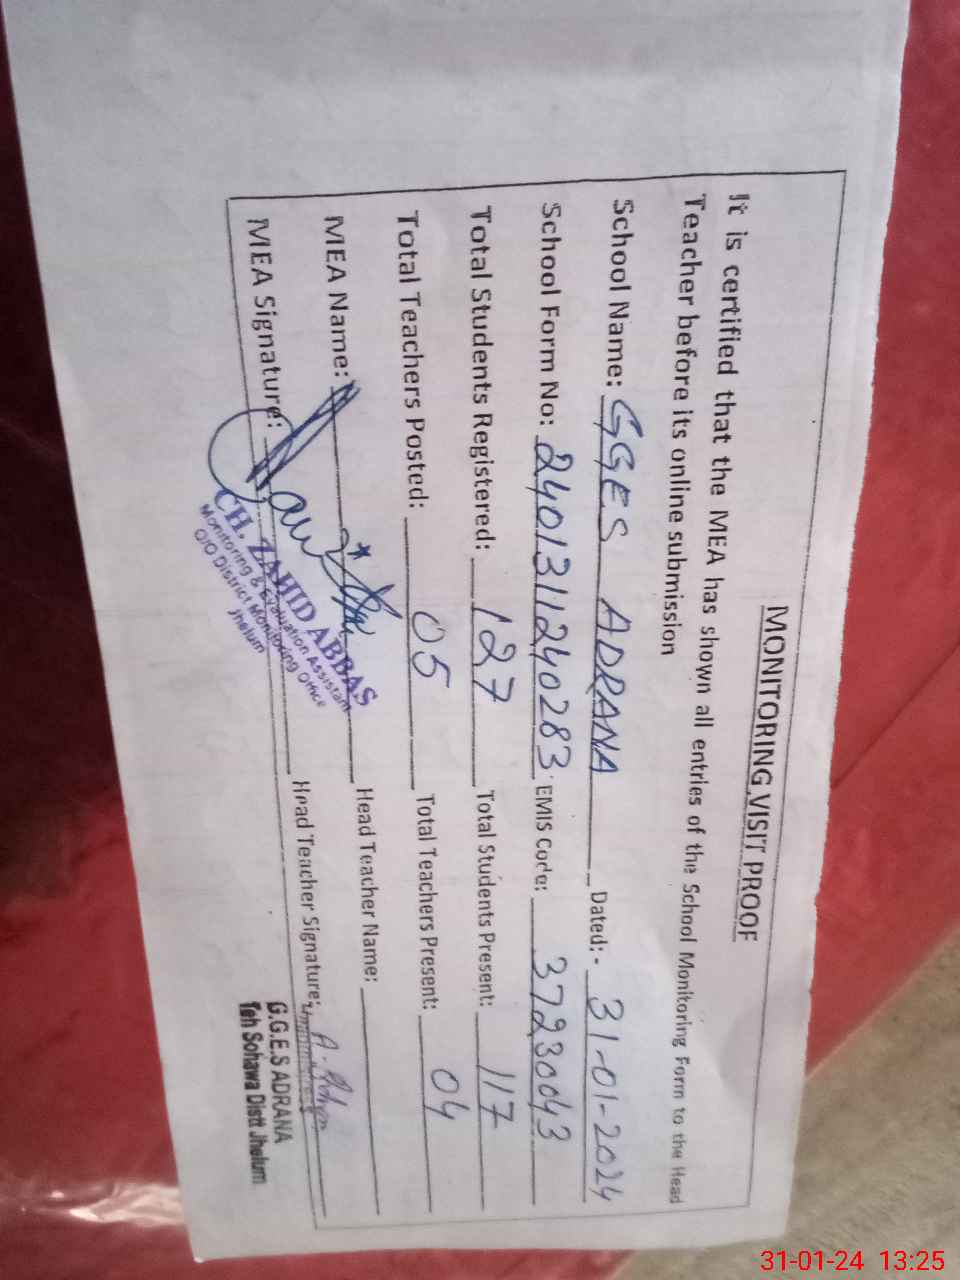 MONITORING VISIT PROOF
It is certified that the MEA has shown all entries of the School Monitoring Form to the Head
Teacher before its online submission
School Name: GGES ADRANA Dated:- 31-01-2024
School Form No: 2401311240283 EMIS Code: 37230043
Total Students Registered: 127 Total Students Present: 117
Total Teachers Posted: 05 Total Teachers Present: 04
MEA Name: Head Teacher Name:
MEA Signature: Head Teacher Signature:
CH. ZAHID ABBAS
Monitoring & Evaluation Assistant
O/O District Monitoring Office
Jhelum
G.G.E.S ADRANA
Teh Sohawa Distt Jhelum
31-01-24 13:25